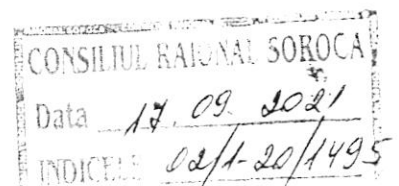 CONSILIUL RAIONAL SOROCA
Data 17.09.2021
INDICELE 02/1-20/1495